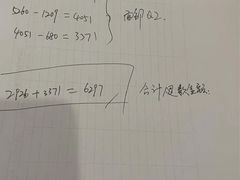 5260 - 1209 = 4051
4051 - 680 = 3371
西部 Q2.
2926 + 3371 = 6297
合计退款金额.